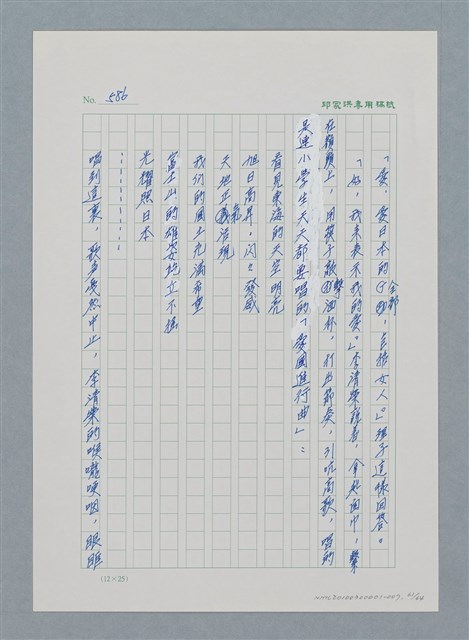 No. 586
邱家洪專用稿紙
「愛，愛日本的全部，包括女人。」孩子這樣回答。
「好，我來表示我的愛。」李清榮說著，拿起面巾，繫
在額頭上，用筷子敲擊酒杯，打出節奏，引吭高歌，唱的
是連小學生天天都要唱的「愛國進行曲」：
看見東海的天空明亮
旭日高昇，閃閃發威
天地正氣浩現
我們的國土充滿希望
富士山的雄姿屹立不搖
光耀照日本
…………
唱到這裏，歌聲戛然中止，李清榮的喉嚨哽咽，眼眶
(12×25)